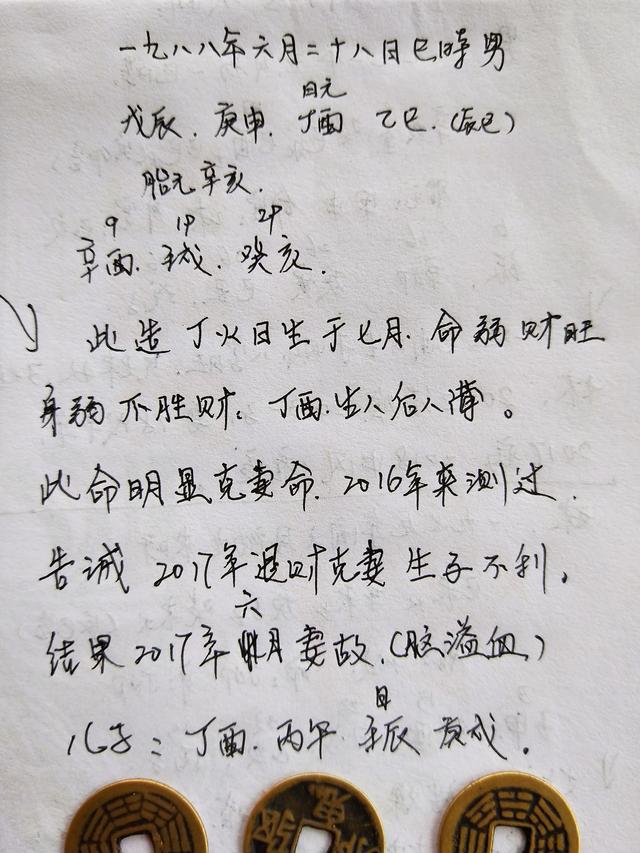 一九八八年六月二十八日巳时 男
日元
戊辰. 庚申. 丁酉 乙巳. (辰巳)
胎元辛亥.
9 19 29
辛酉. 壬戌. 癸亥.
此造丁火日生于七月. 命弱财旺
身弱不胜财. 丁酉生人后人薄。
此命明显克妻命. 2016年来测过.
告诫2017年退财克妻生子不利.
六
结果2017年月妻故. (脑溢血)
日
儿子: 丁酉. 丙午. 壬辰 庚戌.